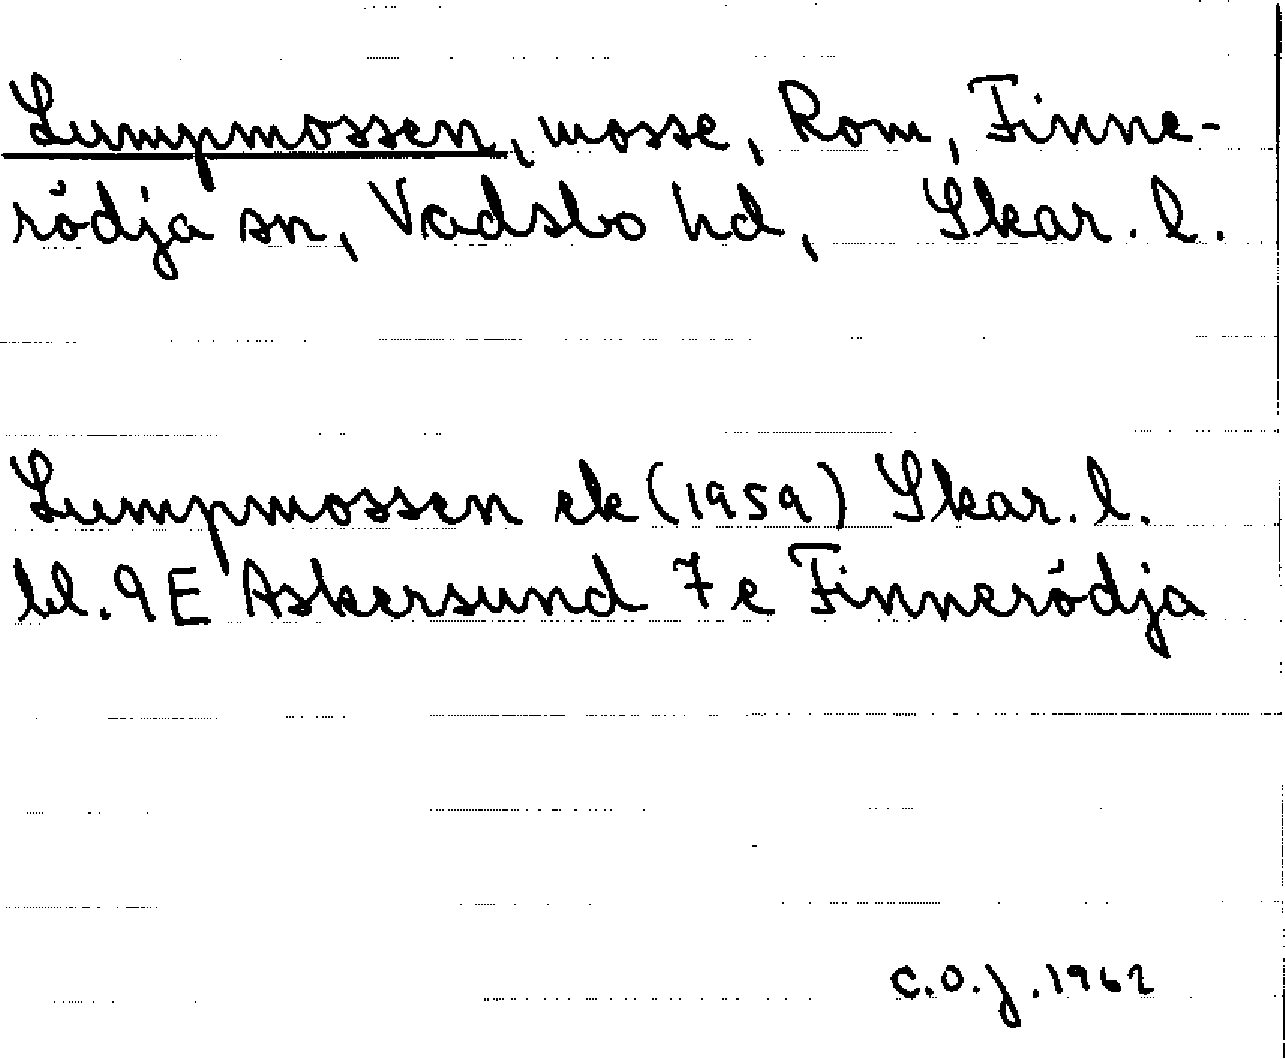 Lumpmossen, mosse, Rom, Finne-
rödja sn, Vadsbo hd, Skar. l.
Lumpmossen ek (1959) Skar. l.
bl. 9E Askersund 7e Finnerödja
C.O.J. 1962